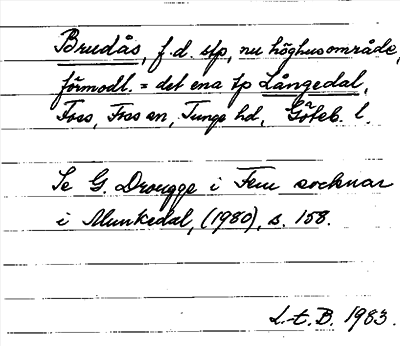 Brudås, f.d. stp, nu höghusområde,
förmodl. = det ena tp Långedal,
Foss, Foss sn, Tunge hd, Göteb. l.
Se G. Drougge i Fem socknar
i Munkedal, (1980), s. 158.
L.t.B. 1983.